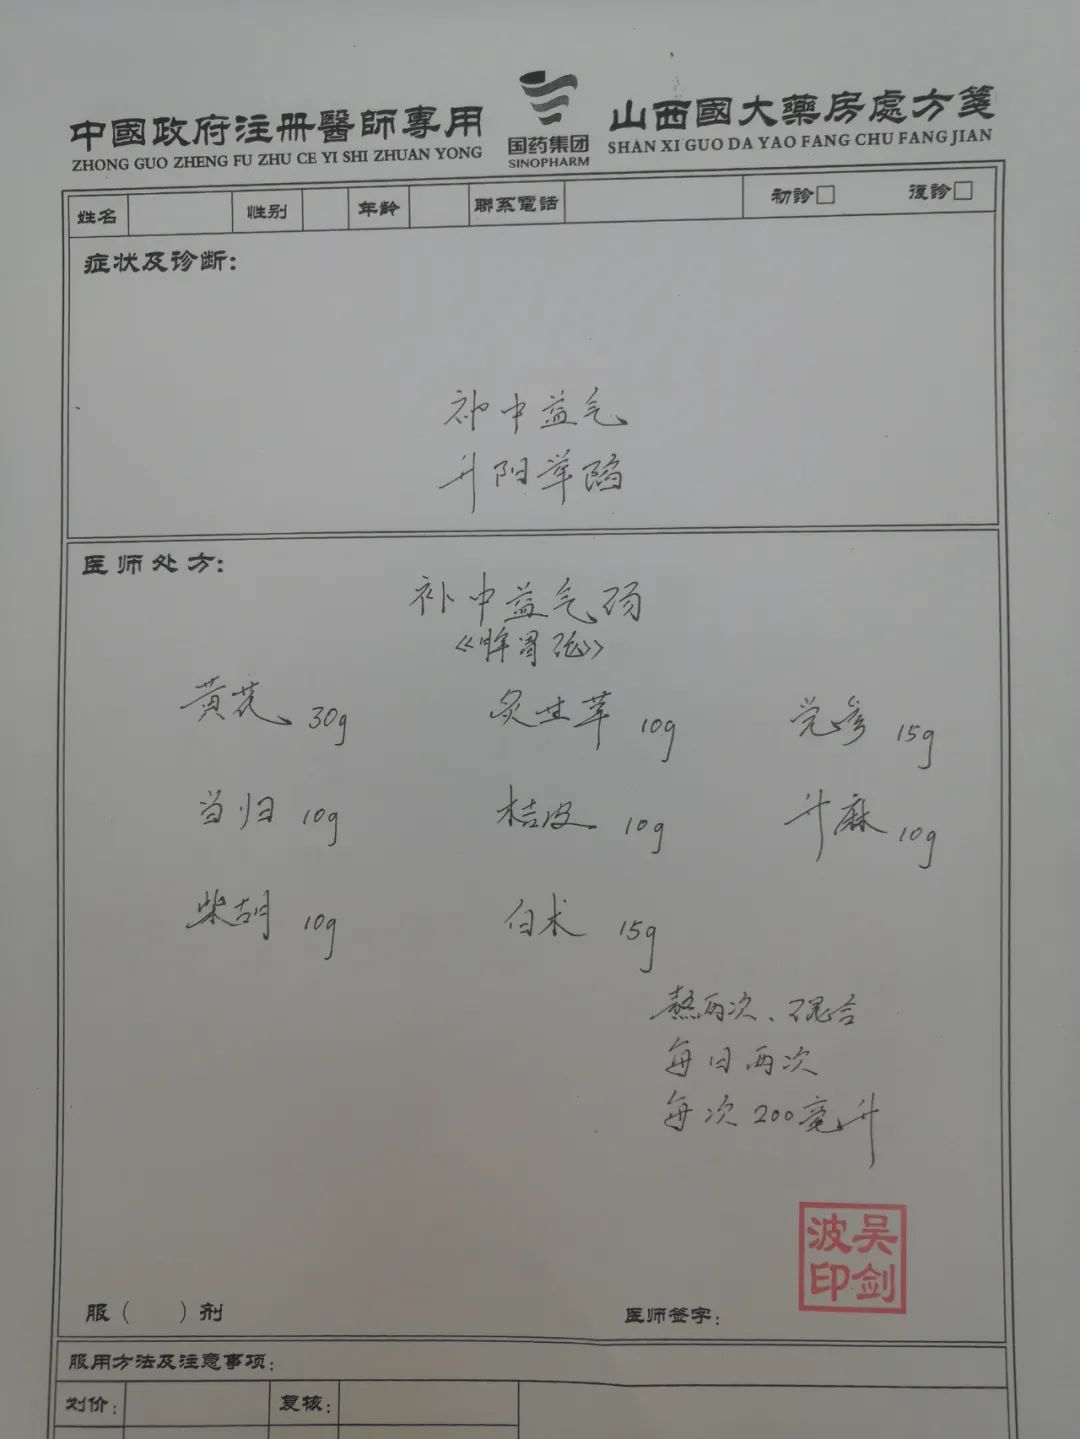 中國政府注册醫師專用
ZHONG GUO ZHENG FU ZHU CE YI SHI ZHUAN YONG
国药集团
SINOPHARM
山西國大藥房處方箋
SHAN XI GUO DA YAO FANG CHU FANG JIAN
姓名 性别 年龄 聯系電話 初診□ 復診□
症状及诊断:
补中益气
升阳举陷
医师处方:
补中益气汤
《脾胃论》
黄芪 30g 炙甘草 10g 党参 15g
当归 10g 桔皮 10g 升麻 10g
柴胡 10g 白术 15g
熬两次、混合
每日两次
每次200毫升
吴剑波印
服( )剂 医师签字:
服用方法及注意事项:
划价: 复核: